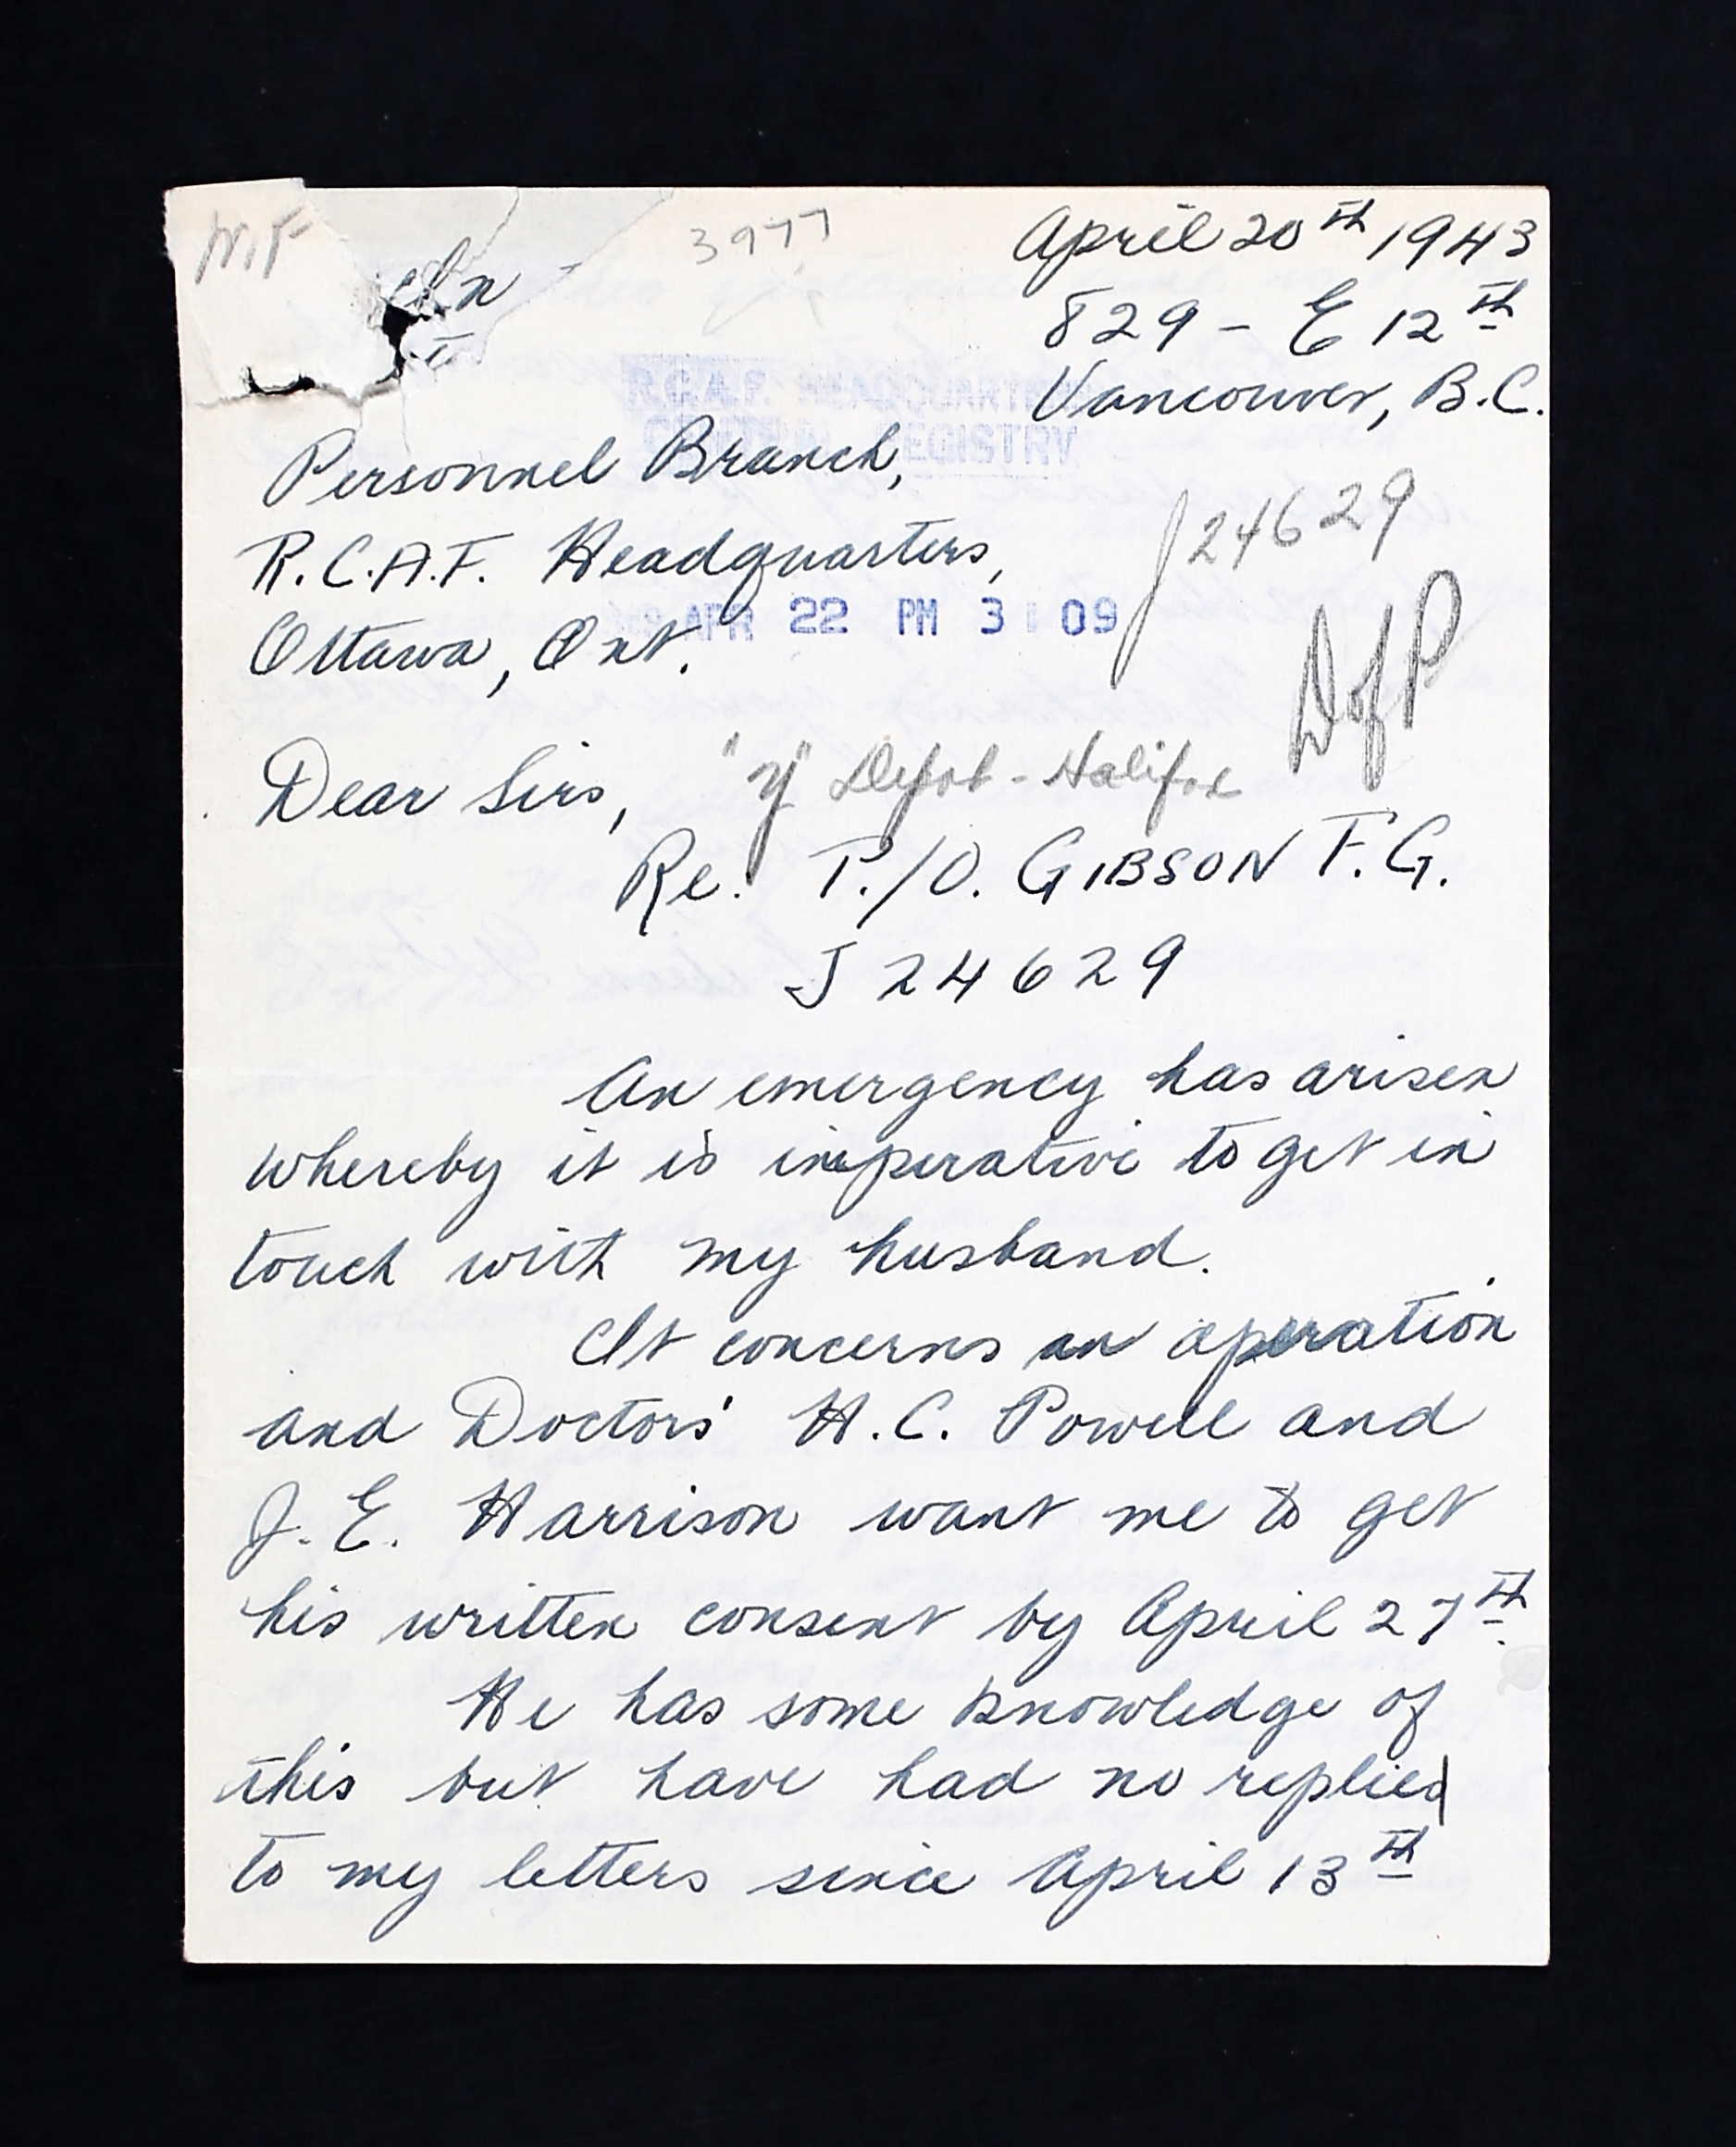 3977
April 20th 1943
829 - E 12th
Vancouver, B.C.
R.C.A.F. HEADQUARTERS
CENTRAL REGISTRY
Personnel Branch,
R.C.A.F. Headquarters,
Ottawa, Ont.
J 24629
APR 22 PM 3 09
D of P
Dear Sirs,
"Y" Depot - Halifax
Re. P./O. GIBSON F. G.
J 24629
An emergency has arisen
whereby it is imperative to get in
touch with my husband.
It concerns an operation
and Doctors' H. C. Powell and
J. E. Harrison want me to get
his written consent by April 27th.
He has some knowledge of
this but have had no replies
to my letters since April 13th